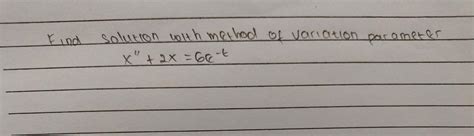 Find solution with method of variation parameter
x" + 2x = 6e⁻ᵗ